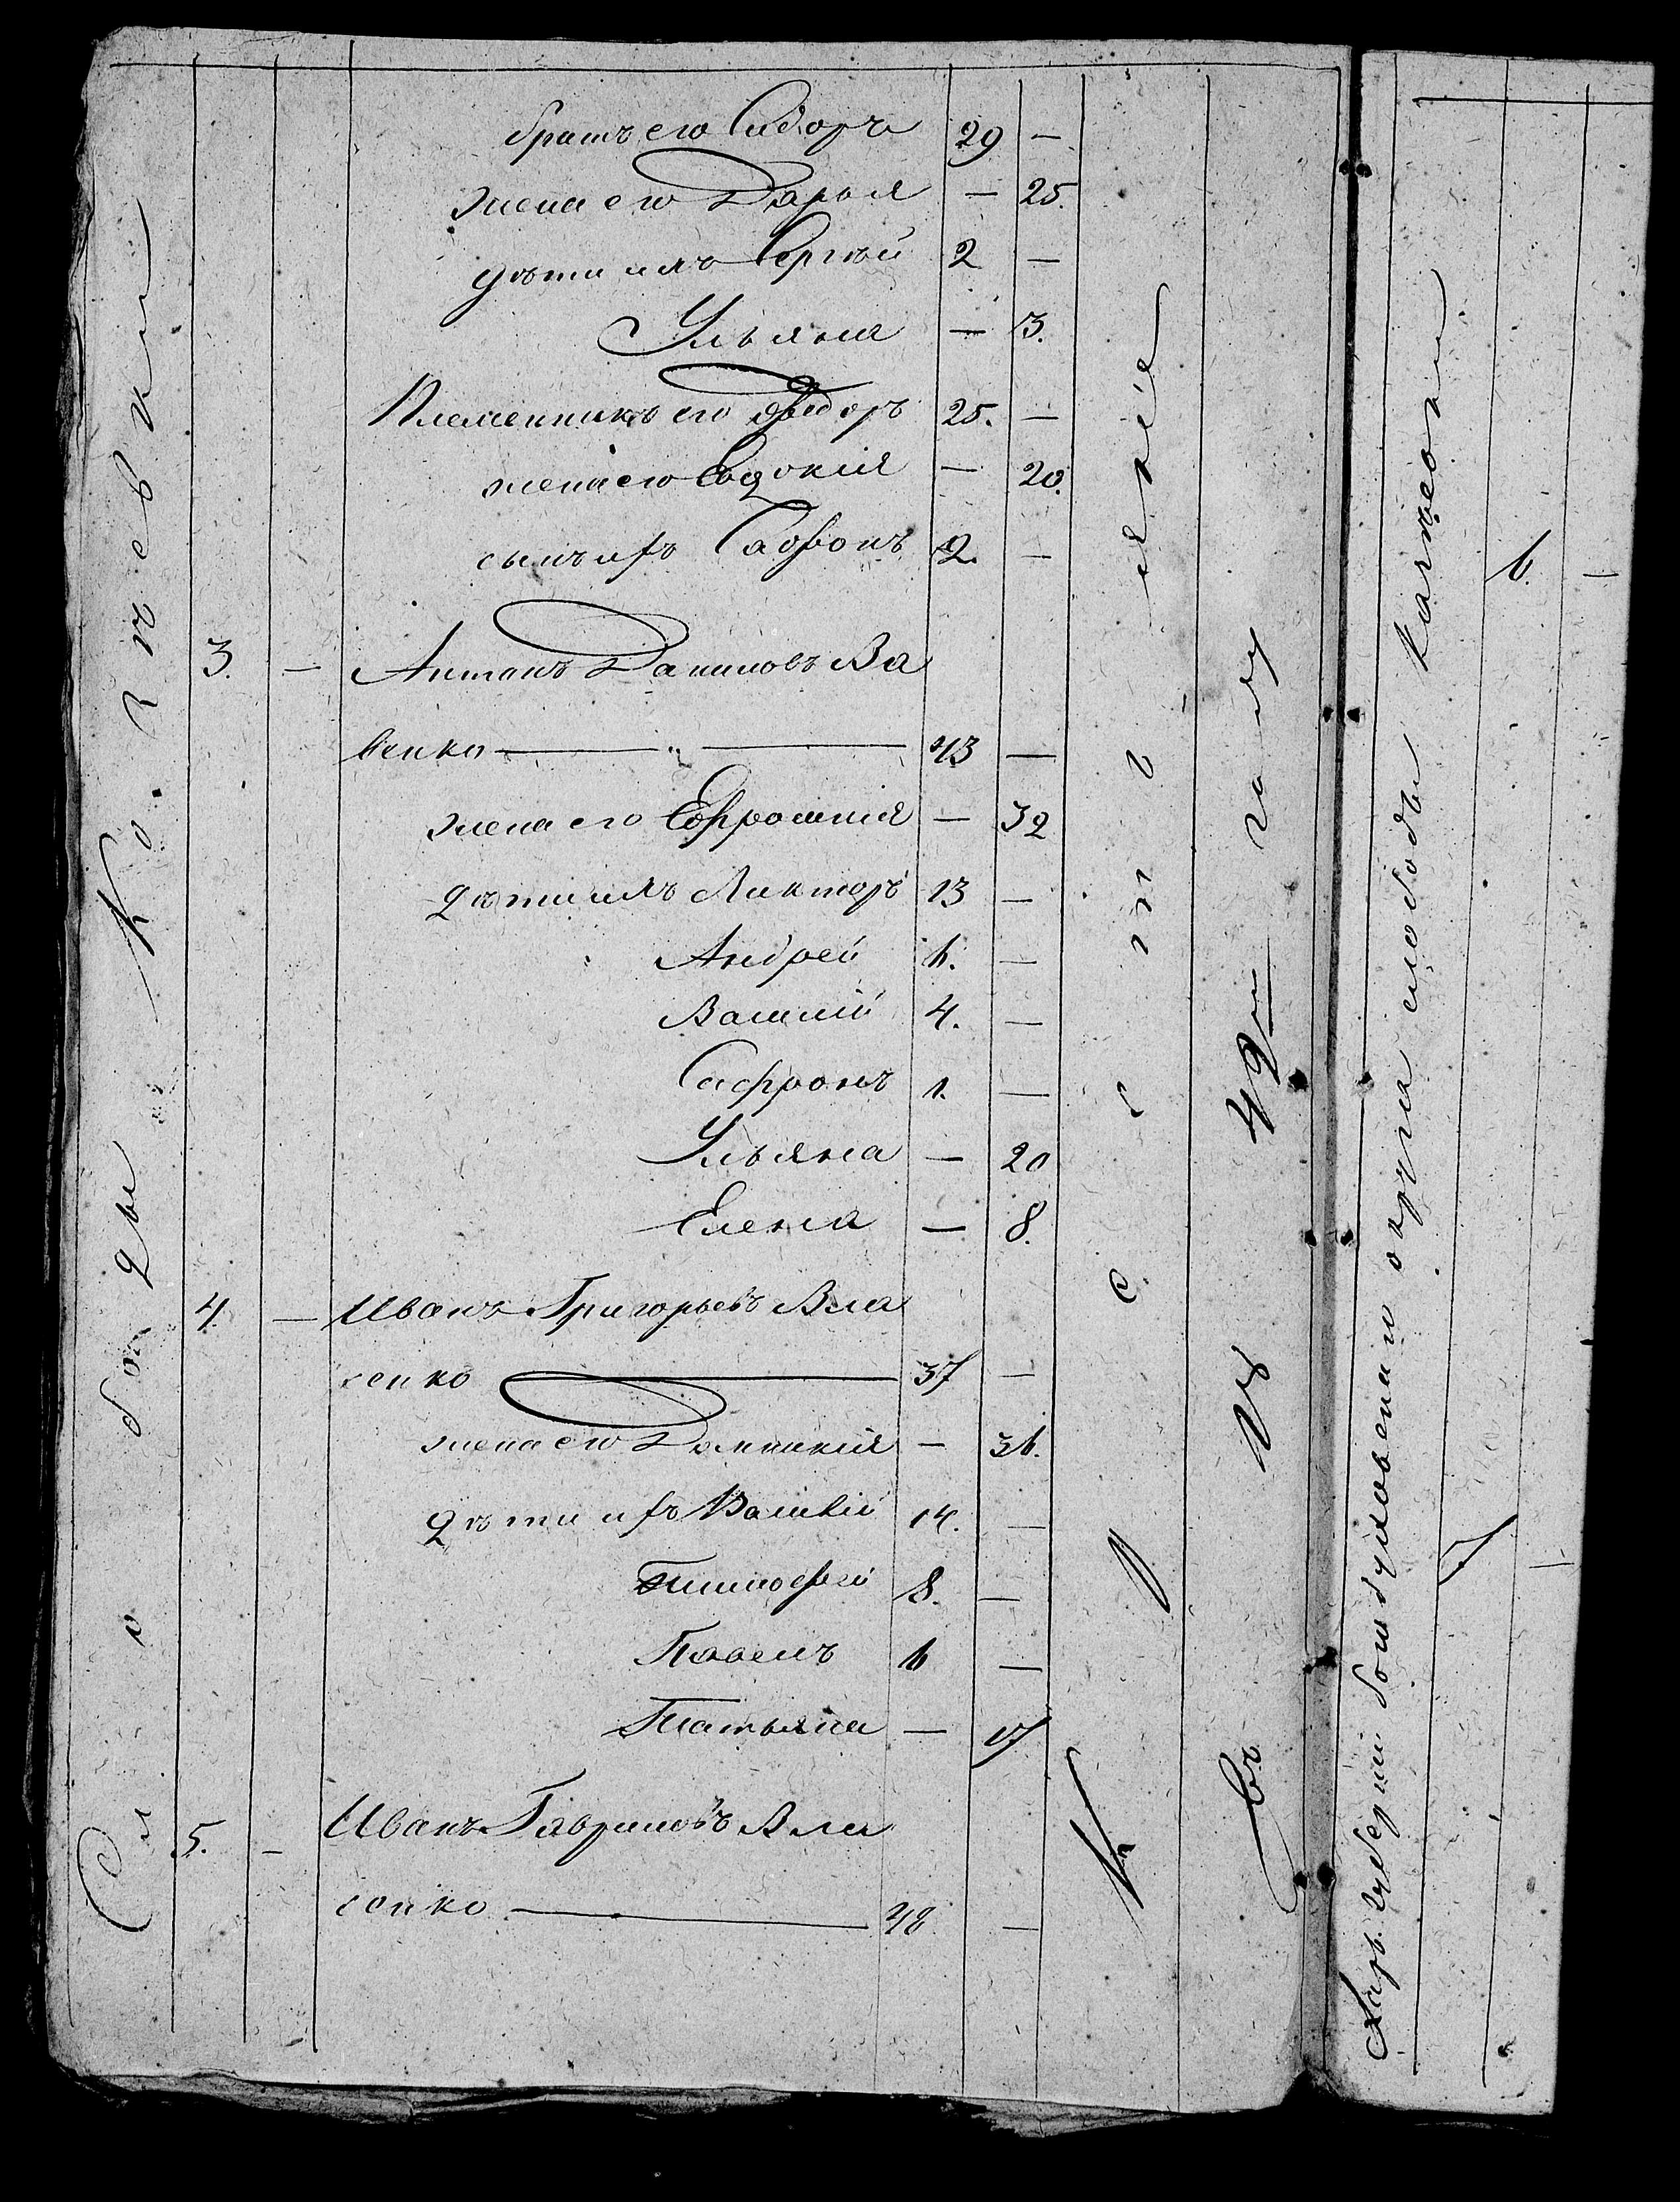 братъ его Сидоръ 29 —
жена его Дарья — 25.
дѣти ихъ Сергѣй 2 —
Ульяна — 3.
Племенникъ его Федоръ 25. —
жена его Евдокия — 20.
сынъ ихъ Сафонъ 2. —
3. — Антонъ Даниловъ Ва
сенко — " — 43 —
жена его Ефросинія — 32
дѣти ихъ Виктор 13 —
Андрей 6. —
Василій 4. —
Сафронъ 1. —
Ульяна — 20
Елена — 8.
4 — Иванъ Григорьевъ Вла
сенко — 37 —
жена его Домникія — 36.
дѣти ихъ Василій 14. —
Тимофей 8. —
Павелъ 6 —
Татьяна — 17
5. — Иванъ Гавриловъ Вла
сенко — 48 —
Слободы Козѣевки
Крестьяніе
Въ 18 42 м году
Харьк. губерніи Богодуховскаго округа слободы
6. —
7 —